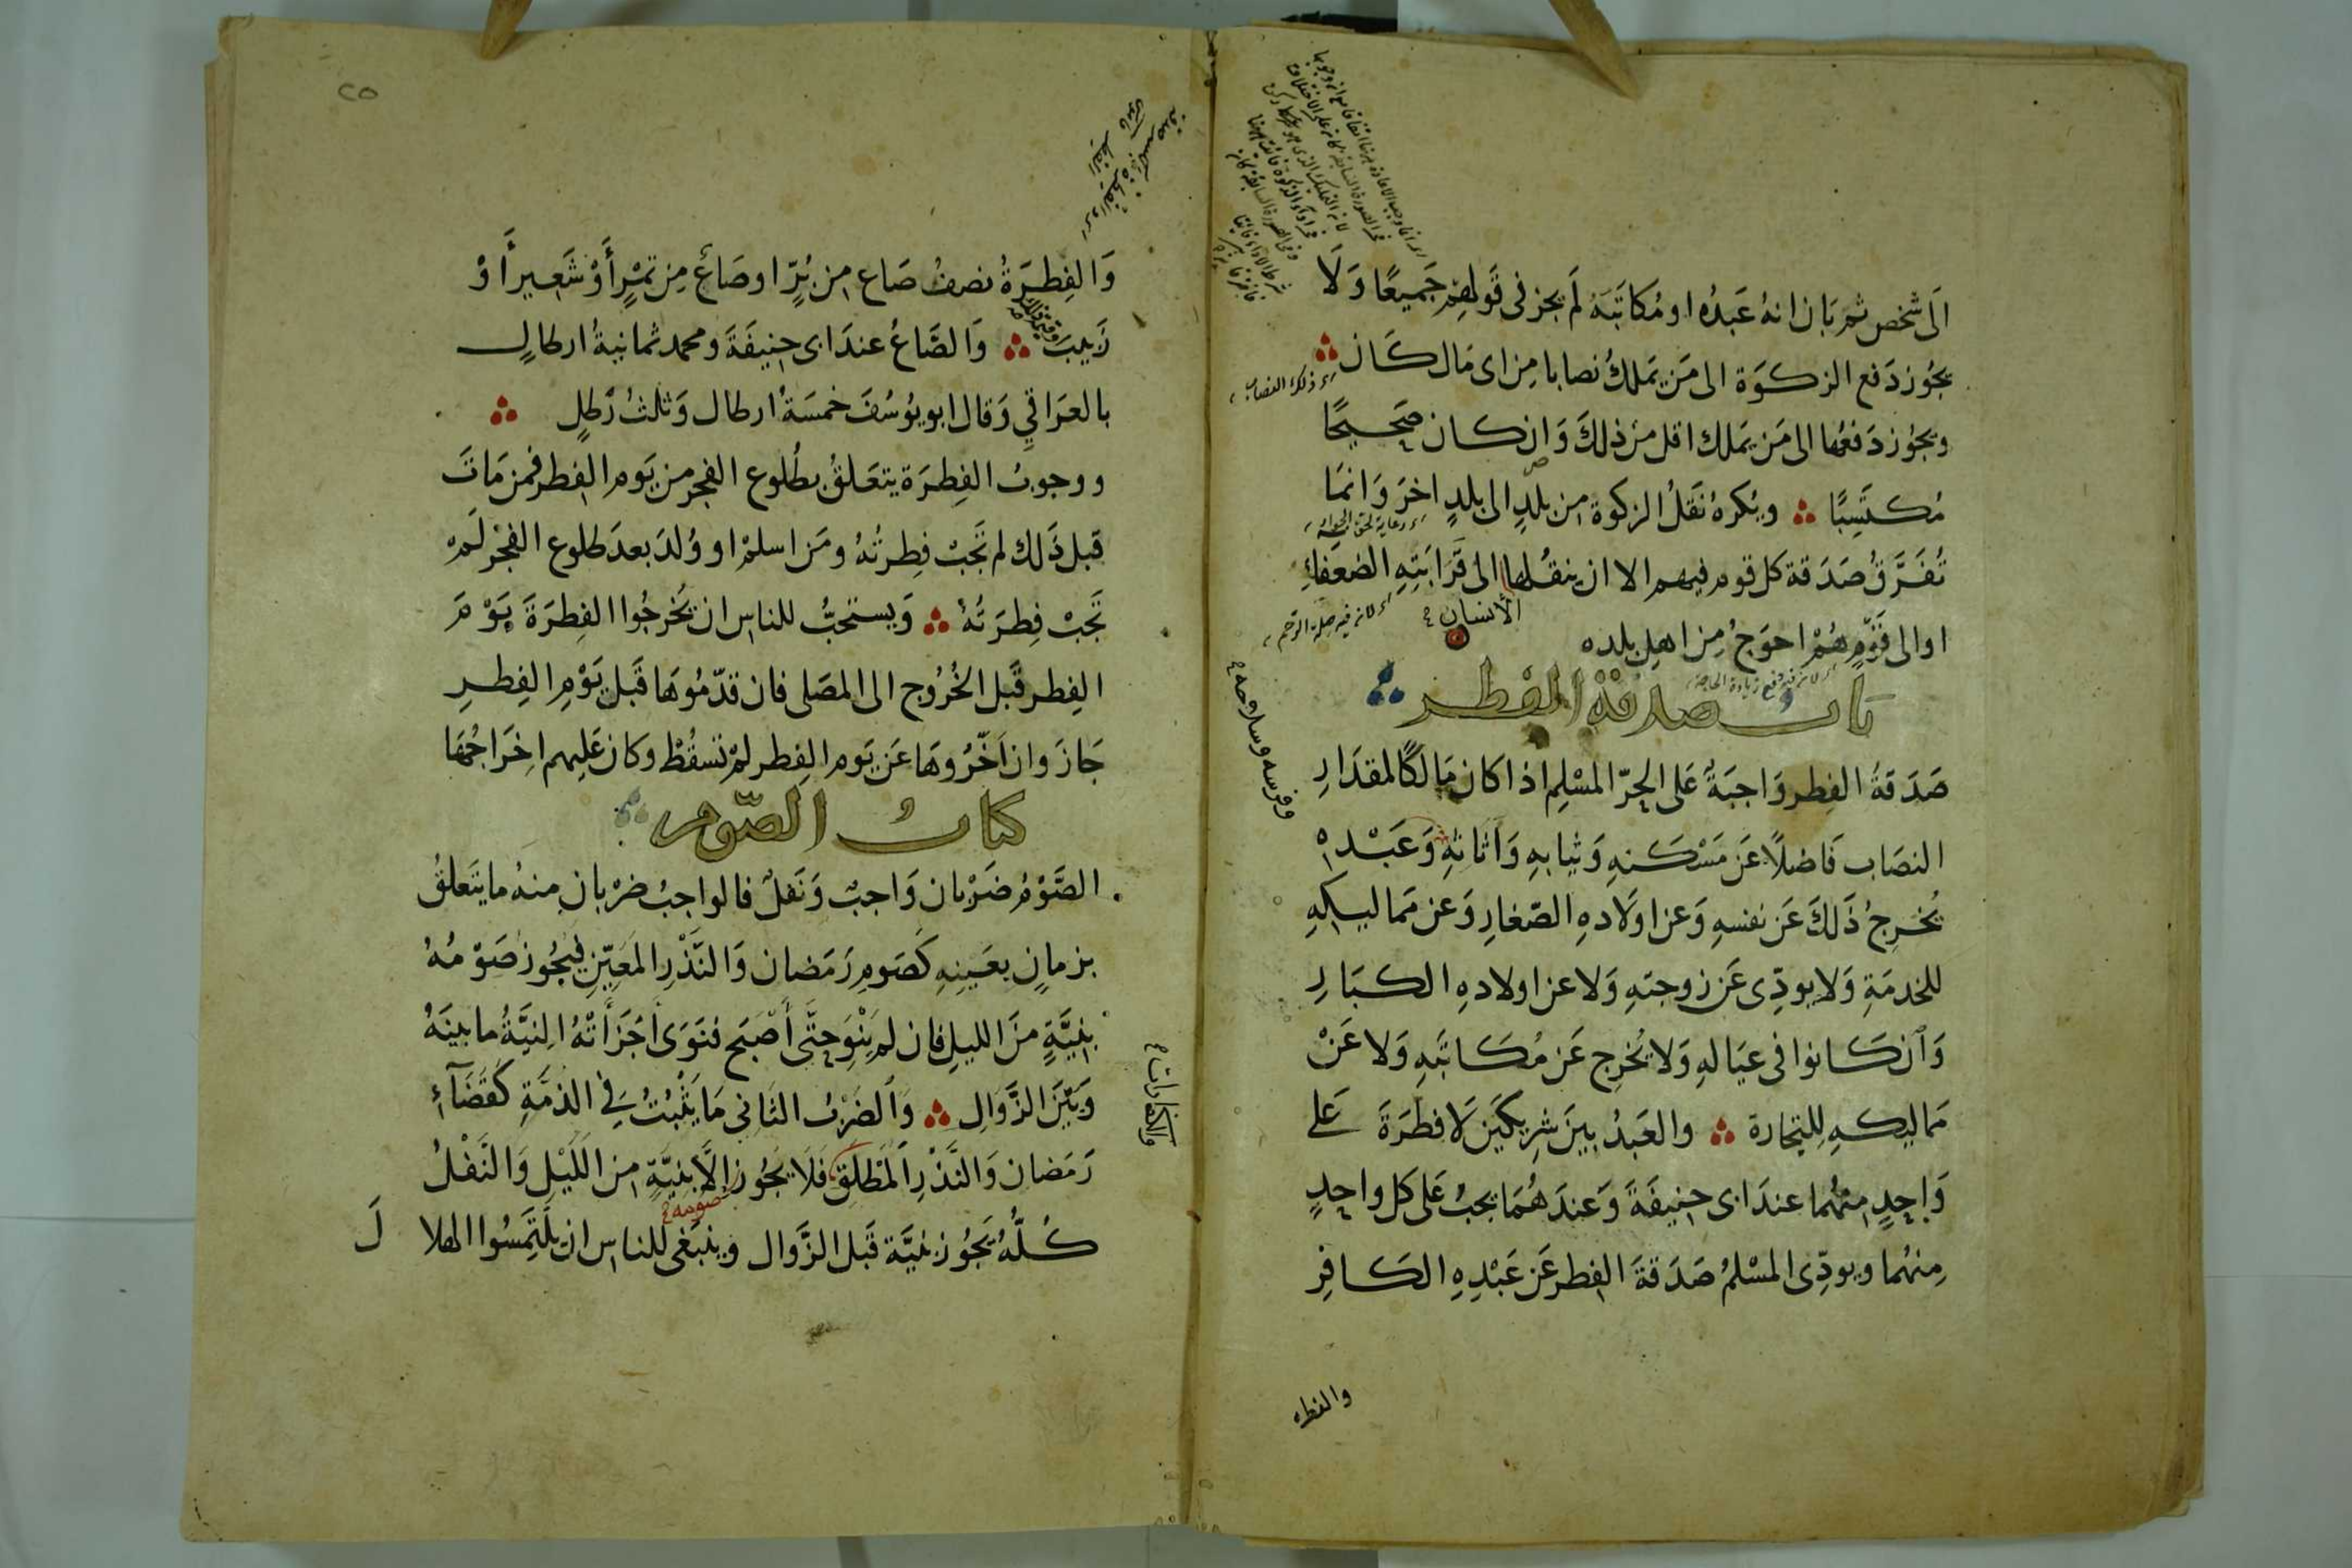 الى شخص ثم بان انهُ عَبدُه او مُكاتَبَهُ لَم يجز فى قَولهم جَميعًا وَلَا
يجُوز دَفع الزكوَة الى مَن يَملكُ نصابا مِن اى مَال كَان
اى ذلك النصاب
ويجُوز دَفعُها الى مَن يَملك اقل مِن ذلكَ وَان كان صَحيحًا
مُكتَسِبًا ويُكرهُ نَقلُ الزكوة من بلدٍ الى بلدٍ اخرَ وَانمَا
تُفَرَّقُ صَدَقة كل قوم فيهم الا ان ينقُلها الى قَرَابَتِهِ الضعفاءِ
الأنسان
اى لانه فيه صلة الرحم
او الى قَوْمٍ هُمْ احوَجُ مِن اهل بلده
باب صدقة الفطر
صَدَقةُ الفِطر وَاجبَةٌ عَلى الحِرّ المسْلِم اذا كان مَالكًا لمقدَارِ
وفرسه وسلاحه
النصَاب فَاضلًا عَن مَسْكَنهِ وَثيابهِ وَاَثاثهِ وَعَبْدهِ
يُخرِجُ ذَلكَ عَن نفسهِ وَعن اولَادهِ الصّغارِ وَعن مَماليكهِ
للخدمَةِ وَلا يودِّى عَن زوجتهِ وَلا عن اولادهِ الكبَارِ
وَاِن كَانوا فى عيَالهِ وَلا يُخرِج عَن مُكَاتَبهِ وَلا عَنْ
مَماليكهِ لِلتجارة والعَبدُ بينَ شرِيكَين لَا فطرَةَ عَلى
وَاحِدٍ منهُما عندَ ابى حنيفَةَ وَعندَ هُمَا يجبُ عَلى كل واحِدٍ
مِنهُما ويودِّى المسْلمُ صَدَقةَ الفِطر عَن عَبْدِهِ الكَافِرِ
والفطرة
٢٥
وَالفِطرَةُ نصفُ صَاعٍ من بُرٍّ او صَاعٌ مِن تمْرٍ أَوْ شَعير أَوْ
زَبيبَ وَالصَّاعُ عندَ ابى حنيفَةَ ومحمد ثمانيةُ ارطالٍ
بالعرَاقي وَقال ابو يوُسُفَ خمسَةُ ارطال وَثلثُ رَطلٍ
ووجوبُ الفِطرَة يتعَلقُ بطُلوع الفجر من يَوم الفِطر فمن مَاتَ
قبل ذَلك لم تَجَبْ فِطرتُهُ ومَن اسلمَ او وُلدَ بعدَ طلوع الفجْر لَمْ
تَجَبْ فِطرَتُهُ وَيستحبُّ للناس ان يُخرجُوا الفِطرَةَ يَوْمَ
الفِطر قَبل الخُرُوج الى المصَلى فان قدّمُوهَا قَبل يَوْمِ الفِطرِ
جَازَ وان اَخّرُوهَا عَن يَوم الفِطر لَمْ تَسقُطْ وكان عَليهم اخرَاجُهَا
كتابُ الصّوم
الصَّوْمُ ضَرْبان وَاجبٌ وَنَفلٌ فالواجبُ ضرْبان منهُ ما يتَعلقُ
بزمانٍ بعَينِهِ كَصَومِ رَمَضان وَالنَّذْرِ المعَيّنِ فيجُوز صَوْمُهُ
بنِيَّةٍ منَ الليلِ فان لم يَنْوِ حتَّى أَصْبَح فنَوَى أَجَزَأَتْهُ النيَّةُ ما بينَهُ
وَبَيْنَ الزَّوَالِ وَالضَربُ الثاني مَا يَثْبُتُ فِي الذمَّةِ كَقَضَآءِ
والكفارات
رَمَضان وَالنَّذْرِ اَلمطلَقِ فَلَا يَجُوز إلَّا بنيَّةٍ من اللَيْلِ وَالنَّفْلُ
صومه
كُلُّهُ يَجُوز بنيَّة قَبل الزَّوال وينبَغى للناس ان يلتَمِسُوا الهلا لَ